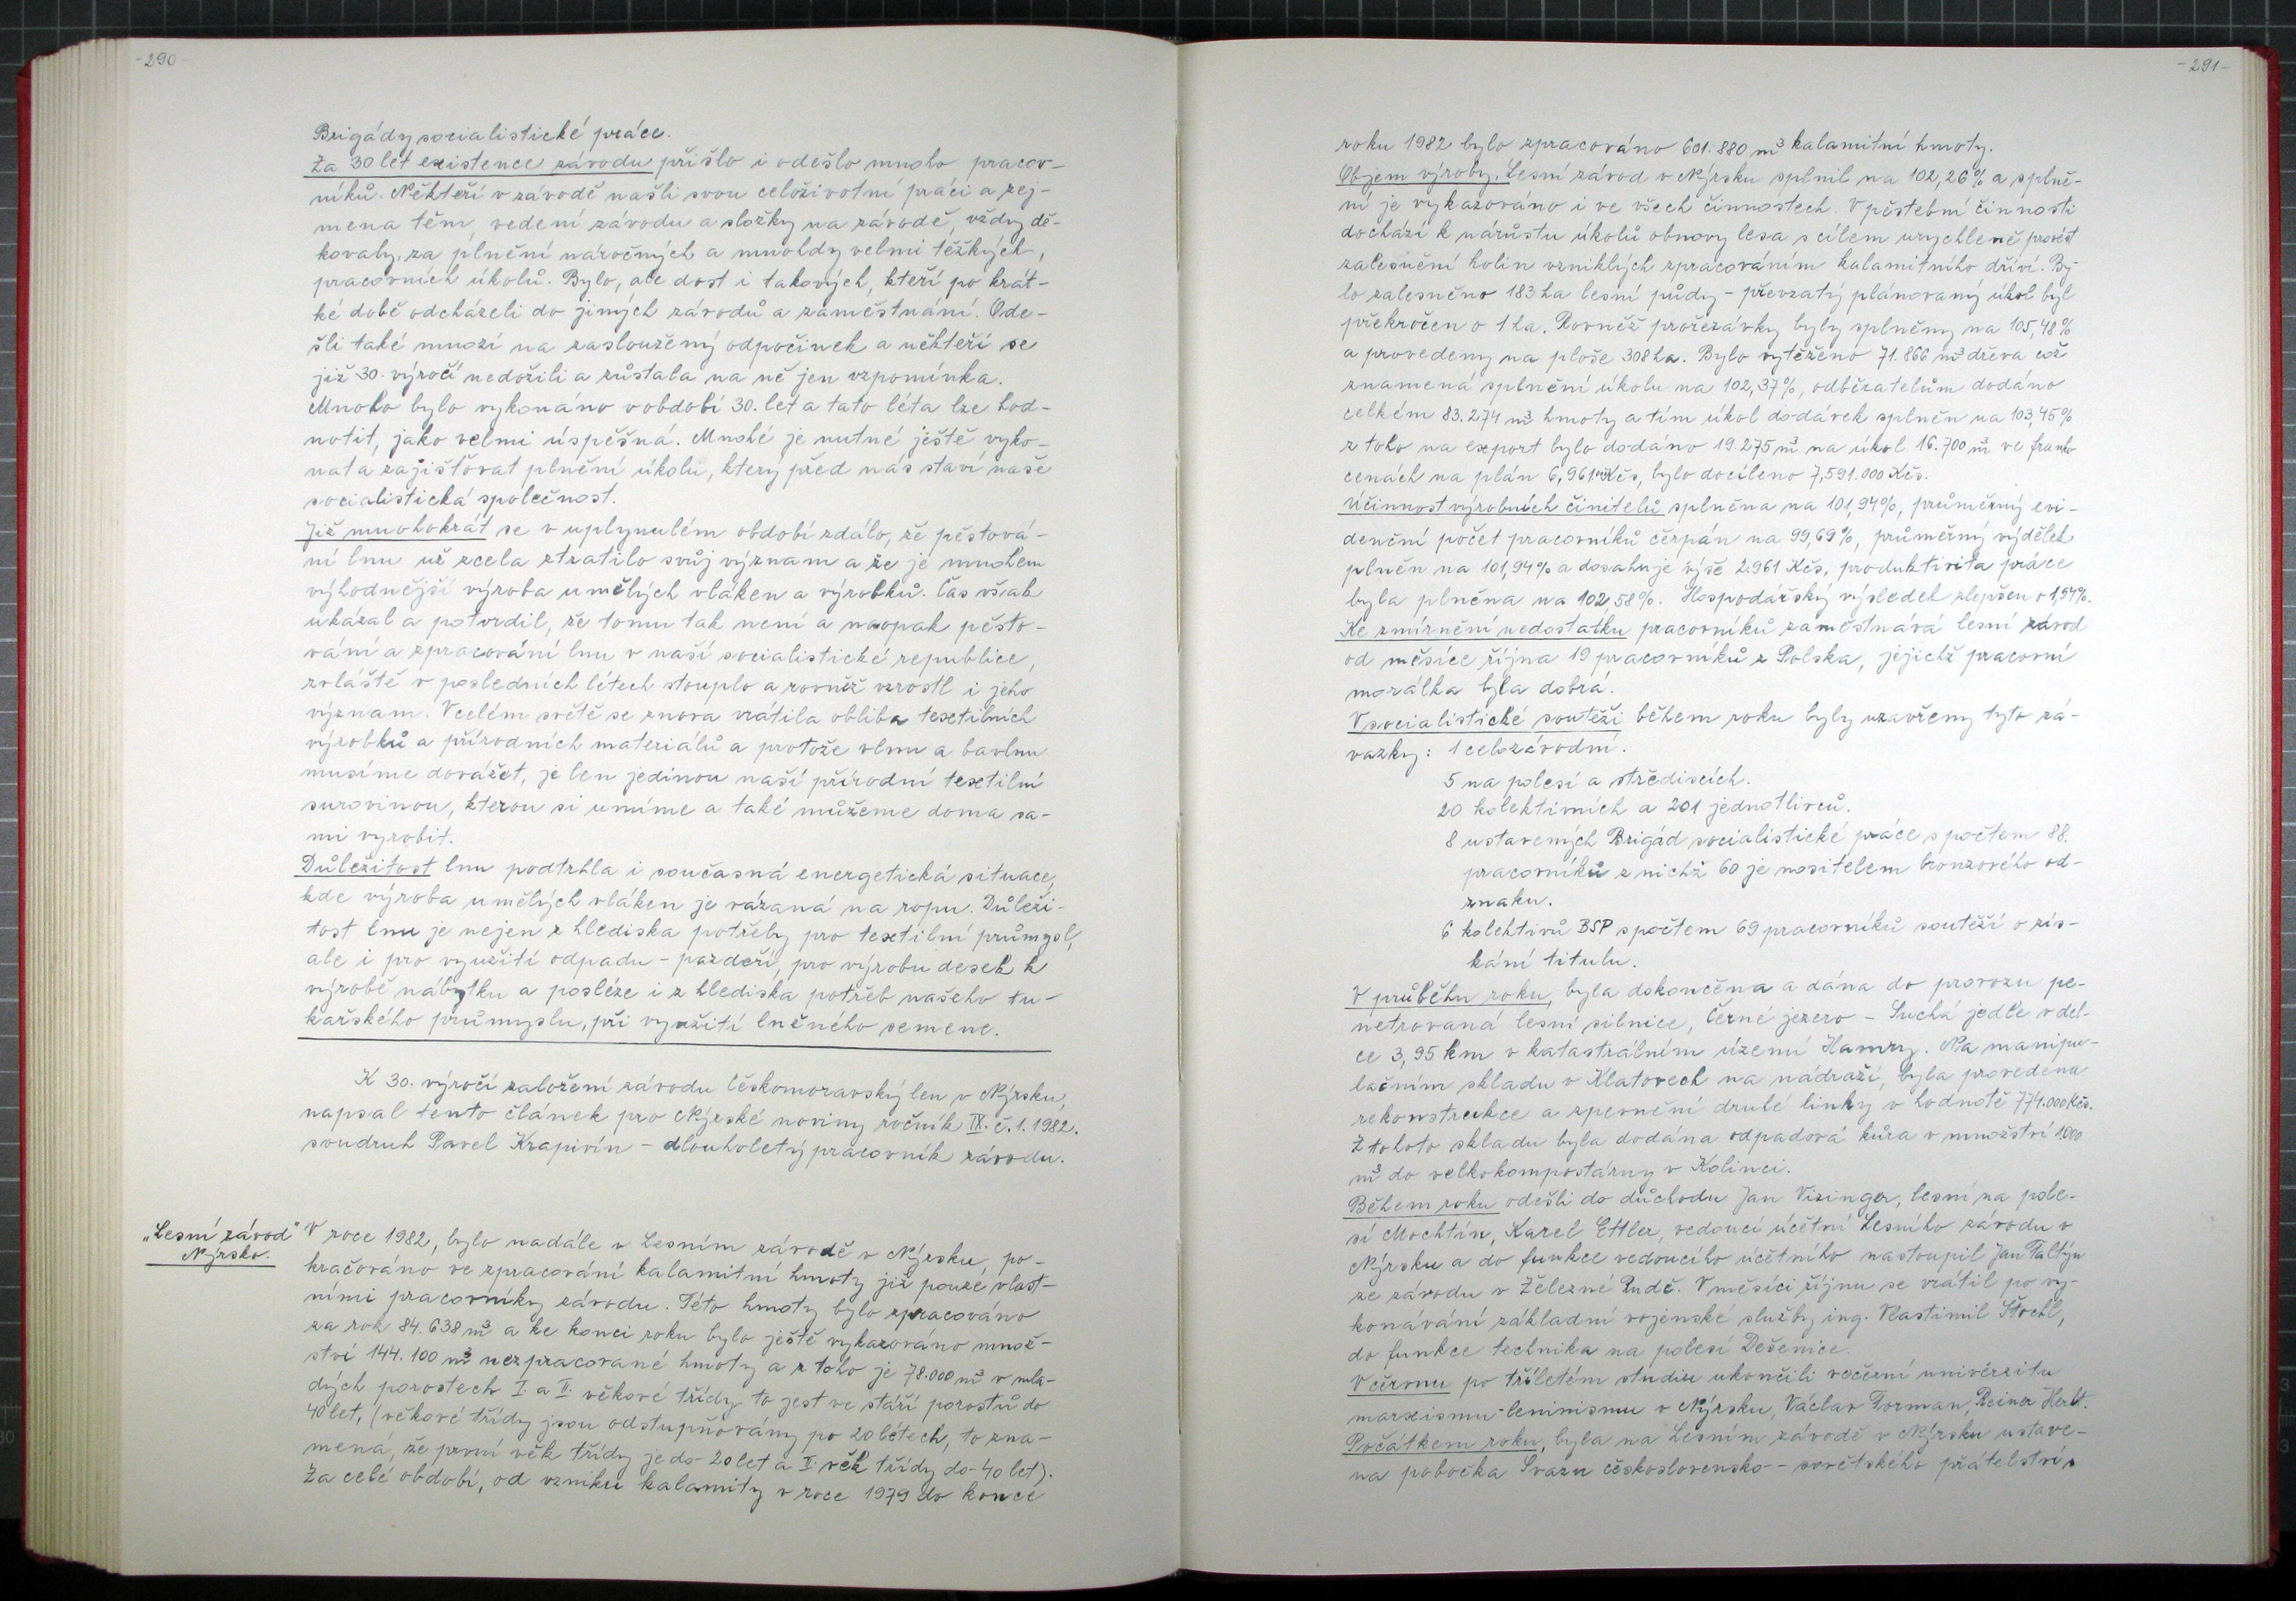 -290-
Brigády socialistické práce.
Za 30 let existence závodu přišlo i odešlo mnoho pracov-
níků. Někteří v závodě našli svou celoživotní práci a zej-
mena těm, vedení závodu a složky na závodě, vždy dě-
kovaly, za plnění náročných a mnohdy velmi těžkých,
pracovních úkolů. Bylo, ale dost i takových, kteří po krát-
ké době odcházeli do jiných závodů a zaměstnání. Ode-
šli také mnozí na zasloužený odpočinek a někteří se
již 30. výročí nedožili a zůstala na ně jen vzpomínka.
Mnoho bylo vykonáno v období 30. let a tato léta lze hod-
notit, jako velmi úspěšná. Mnohé je nutné ještě vyko-
nat a zajišťovat plnění úkolu, který před nás staví naše
socialistická společnost.
Již mnohokrát se v uplynulém období zdálo, že pěstová-
ní lnu už zcela ztratilo svůj význam a že je mnohem
výhodnější výroba umělých vláken a výrobků. Čas však
ukázal a potvrdil, že tomu tak není a naopak pěsto-
vání a zpracování lnu v naší socialistické republice,
zvláště v posledních létech stouplo a rovněž vzrostl i jeho
význam. V celém světě se znova vrátila obliba textilních
výrobků a přírodních materiálů a protože vlnu a bavlnu
musíme dovážet, je len jedinou naší přírodní textilní
surovinou, kterou si umíme a také můžeme doma sa-
mi vyrobit.
Důležitost lnu podtrhla i současná energetická situace,
kde výroba umělých vláken je vázaná na ropu. Důleži-
tost lnu je nejen z hlediska potřeby pro textilní průmysl,
ale i pro využití odpadu - pazdeří, pro výrobu desek k
výrobě nábytku a posléze i z hlediska potřeb našeho tu-
kařského průmyslu, při využití lněného semene.
K 30. výročí založení závodu Českomoravský len v Nýrsku,
napsal tento článek pro Nýrské noviny ročník IX. č. 1. 1982.
soudruh Pavel Krapivín - dlouholetý pracovník závodu.
„Lesní závod"
Nýrsko.
V roce 1982, bylo nadále v Lesním závodě v Nýrsku, po-
kračováno ve zpracování kalamitní hmoty již pouze vlast-
ními pracovníky závodu. Této hmoty bylo zpracováno
za rok 84.638 m³ a ke konci roku bylo ještě vykazováno množ-
ství 144.100 m³ nezpracované hmoty a z toho je 78.000 m³ v mla-
dých porostech I. a II. věkové třídy to jest ve stáří porostů do
40 let, (věkové třídy jsou odstupňovány po 20 létech, to zna-
mená, že první věk třídy je do 20 let a II. věk třídy do 40 let).
Za celé období, od vzniku kalamity v roce 1979 do konce
-291-
roku 1982 bylo zpracováno 601.880 m³ kalamitní hmoty.
Objem výroby. Lesní závod v Nýrsku splnil na 102,26% a splně-
ní je vykazováno i ve všech činnostech. V pěstební činnosti
dochází k nárůstu úkolů obnovy lesa s cílem urychleně provést
zalesnění holin vzniklých zpracováním kalamitního dříví. By-
lo zalesněno 183 ha lesní půdy - převzatý plánovaný úkol byl
překročen o 1 ha. Rovněž prořezávky byly splněny na 105,48%
a provedeny na ploše 308 ha. Bylo vytěženo 71.866 m³ dřeva což
znamená splnění úkolu na 102,37%, odběratelům dodáno
celkém 83.274 m³ hmoty a tím úkol dodávek splněn na 103,45%
z toho na export bylo dodáno 19.275 m³ na úkol 16.700 m³ ve franko
cenách na plán 6,961.000 Kčs, bylo docíleno 7,591.000 Kčs.
Účinnost výrobních činitelů splněna na 101,94%, průměrný evi-
denční počet pracovníků čerpán na 99,69%, průměrný výdělek
plněn na 101,94% a dosahuje výše 2.961 Kčs, produktivita práce
byla plněna na 102,58%. Hospodářský výsledek zlepšen o 1,94%.
Ke zmírnění nedostatku pracovníků zaměstnává lesní závod
od měsíce října 19 pracovníků z Polska, jejichž pracovní
morálka byla dobrá.
V socialistické soutěži během roku byly uzavřeny tyto zá-
vazky: 1 celozávodní.
5 na polesí a střediscích.
20 kolektivních a 201 jednotlivců.
8 ustavených Brigád socialistické práce s počtem 88.
pracovníků z nichž 60 je nositelem bronzového od-
znaku.
6 kolektivů BSP s počtem 69 pracovníků soutěží o zís-
kání titulu.
V průběhu roku, byla dokončena a dána do provozu pe-
netrovaná lesní silnice, Černé jezero - Suchá jedle v dél-
ce 3,95 km v katastrálním území Hamry. Na manipu-
lačním skladu v Klatovech na nádraží, byla provedena
rekonstrukce a zpevnění druhé linky v hodnotě 774.000 Kčs.
Z tohoto skladu byla dodána odpadová kůra v množství 1.000
m³ do velkokompostárny v Kolinci.
Během roku odešli do důchodu Jan Vizinger, lesní na pole-
sí Mochtín, Karel Ettler, vedoucí účetní Lesního závodu v
Nýrsku a do funkce vedoucího účetního nastoupil Jan Taltýn
ze závodu v Železné Rudě. V měsíci říjnu se vrátil po vy-
konávání základní vojenské služby ing. Vlastimil Štochl,
do funkce technika na polesí Dešenice.
V červnu po tříletém studiu ukončili večerní univerzitu
marxismu-leninismu v Nýrsku, Václav Forman, Reiner Herbt.
Počátkem roku, byla na Lesním závodě v Nýrsku ustave-
na pobočka Svazu československo - sovětského přátelství.